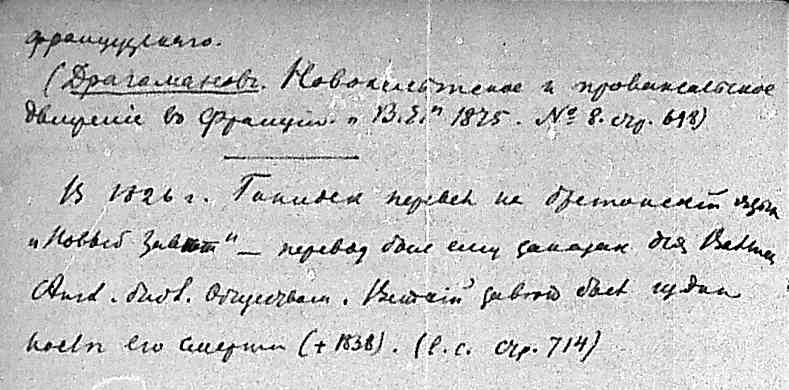 французскаго.
(Драгомановъ. Новокельтское и провансальское
движеніе во Франціи. „В.Е." 1875. № 8. стр. 698)
В 1826 г. Гонидек перевел на бретонскій язык
„Новый Завет" — перевод был ему заказан для
Англ. библ. Обществом. Ветхій завет был издан
послѣ его смерти (+ 1838). (l. c. стр. 714)